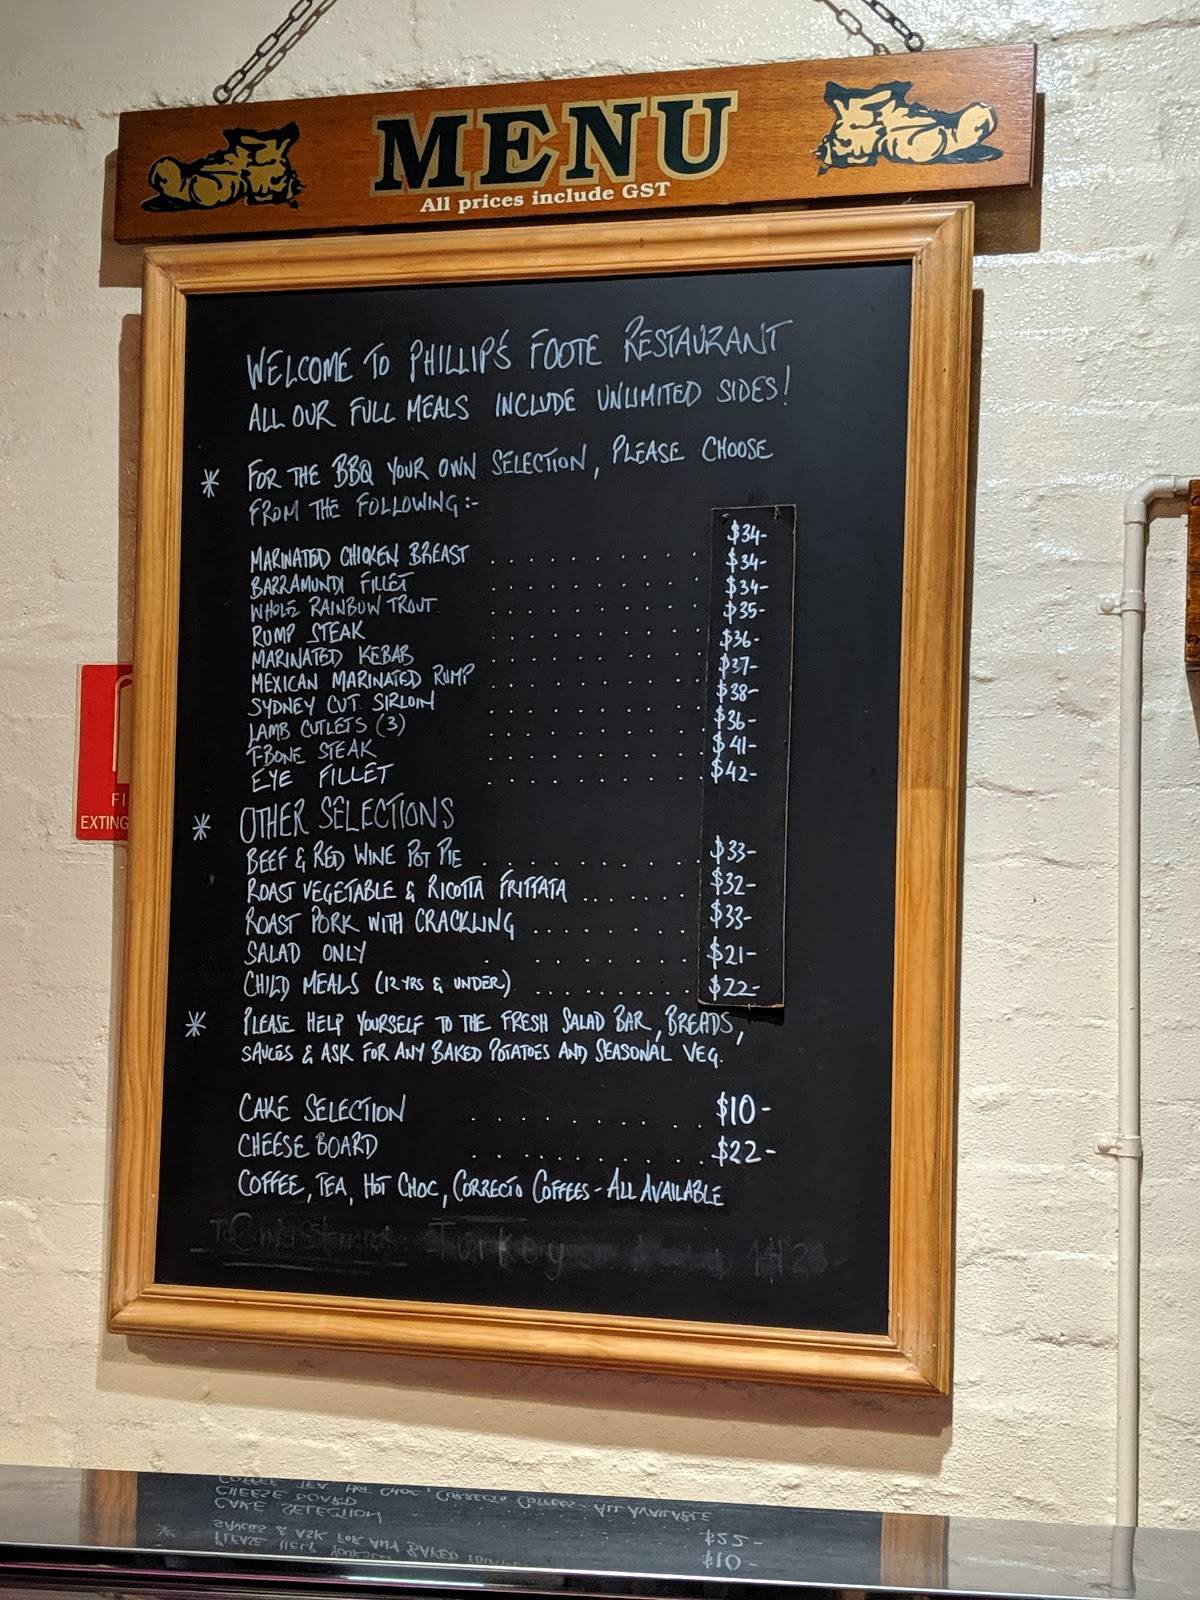 MENU
All prices include GST
WELCOME TO PHILLIP'S FOOTE RESTAURANT
ALL OUR FULL MEALS INCLUDE UNLIMITED SIDES!
* FOR THE BBQ YOUR OWN SELECTION, PLEASE CHOOSE
FROM THE FOLLOWING:-
MARINATED CHICKEN BREAST . . . . . . . . . $34-
BARRAMUNDI FILLET . . . . . . . . . $34-
WHOLE RAINBOW TROUT . . . . . . . . . $34-
RUMP STEAK . . . . . . . . . $35-
MARINATED KEBAB . . . . . . . . . $36-
MEXICAN MARINATED RUMP . . . . . . . . . $37-
SYDNEY CUT SIRLOIN . . . . . . . . . $38-
LAMB CUTLETS (3) . . . . . . . . . $36-
T-BONE STEAK . . . . . . . . . $41-
EYE FILLET . . . . . . . . . $42-
* OTHER SELECTIONS
BEEF & RED WINE POT PIE . . . . . . . . . $33-
ROAST VEGETABLE & RICOTTA FRITTATA . . . . . . $32-
ROAST PORK WITH CRACKLING . . . . . . . . $33-
SALAD ONLY . . . . . . . . $21-
CHILD MEALS (12 YRS & UNDER) . . . . . . . . $22-
* PLEASE HELP YOURSELF TO THE FRESH SALAD BAR, BREADS,
SAUCES & ASK FOR ANY BAKED POTATOES AND SEASONAL VEG.
CAKE SELECTION . . . . . . . . $10-
CHEESE BOARD . . . . . . . . . $22-
COFFEE, TEA, HOT CHOC, CORRECTO COFFEES - ALL AVAILABLE
Turkey
FI
EXTING